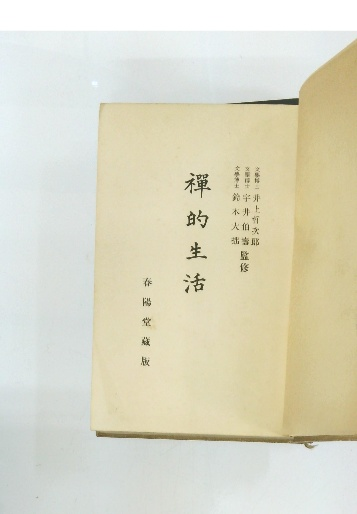 文學博士 井上哲次郎
文學博士 宇井伯壽 監修
文學博士 鈴木大拙
禪的生活
春陽堂藏版